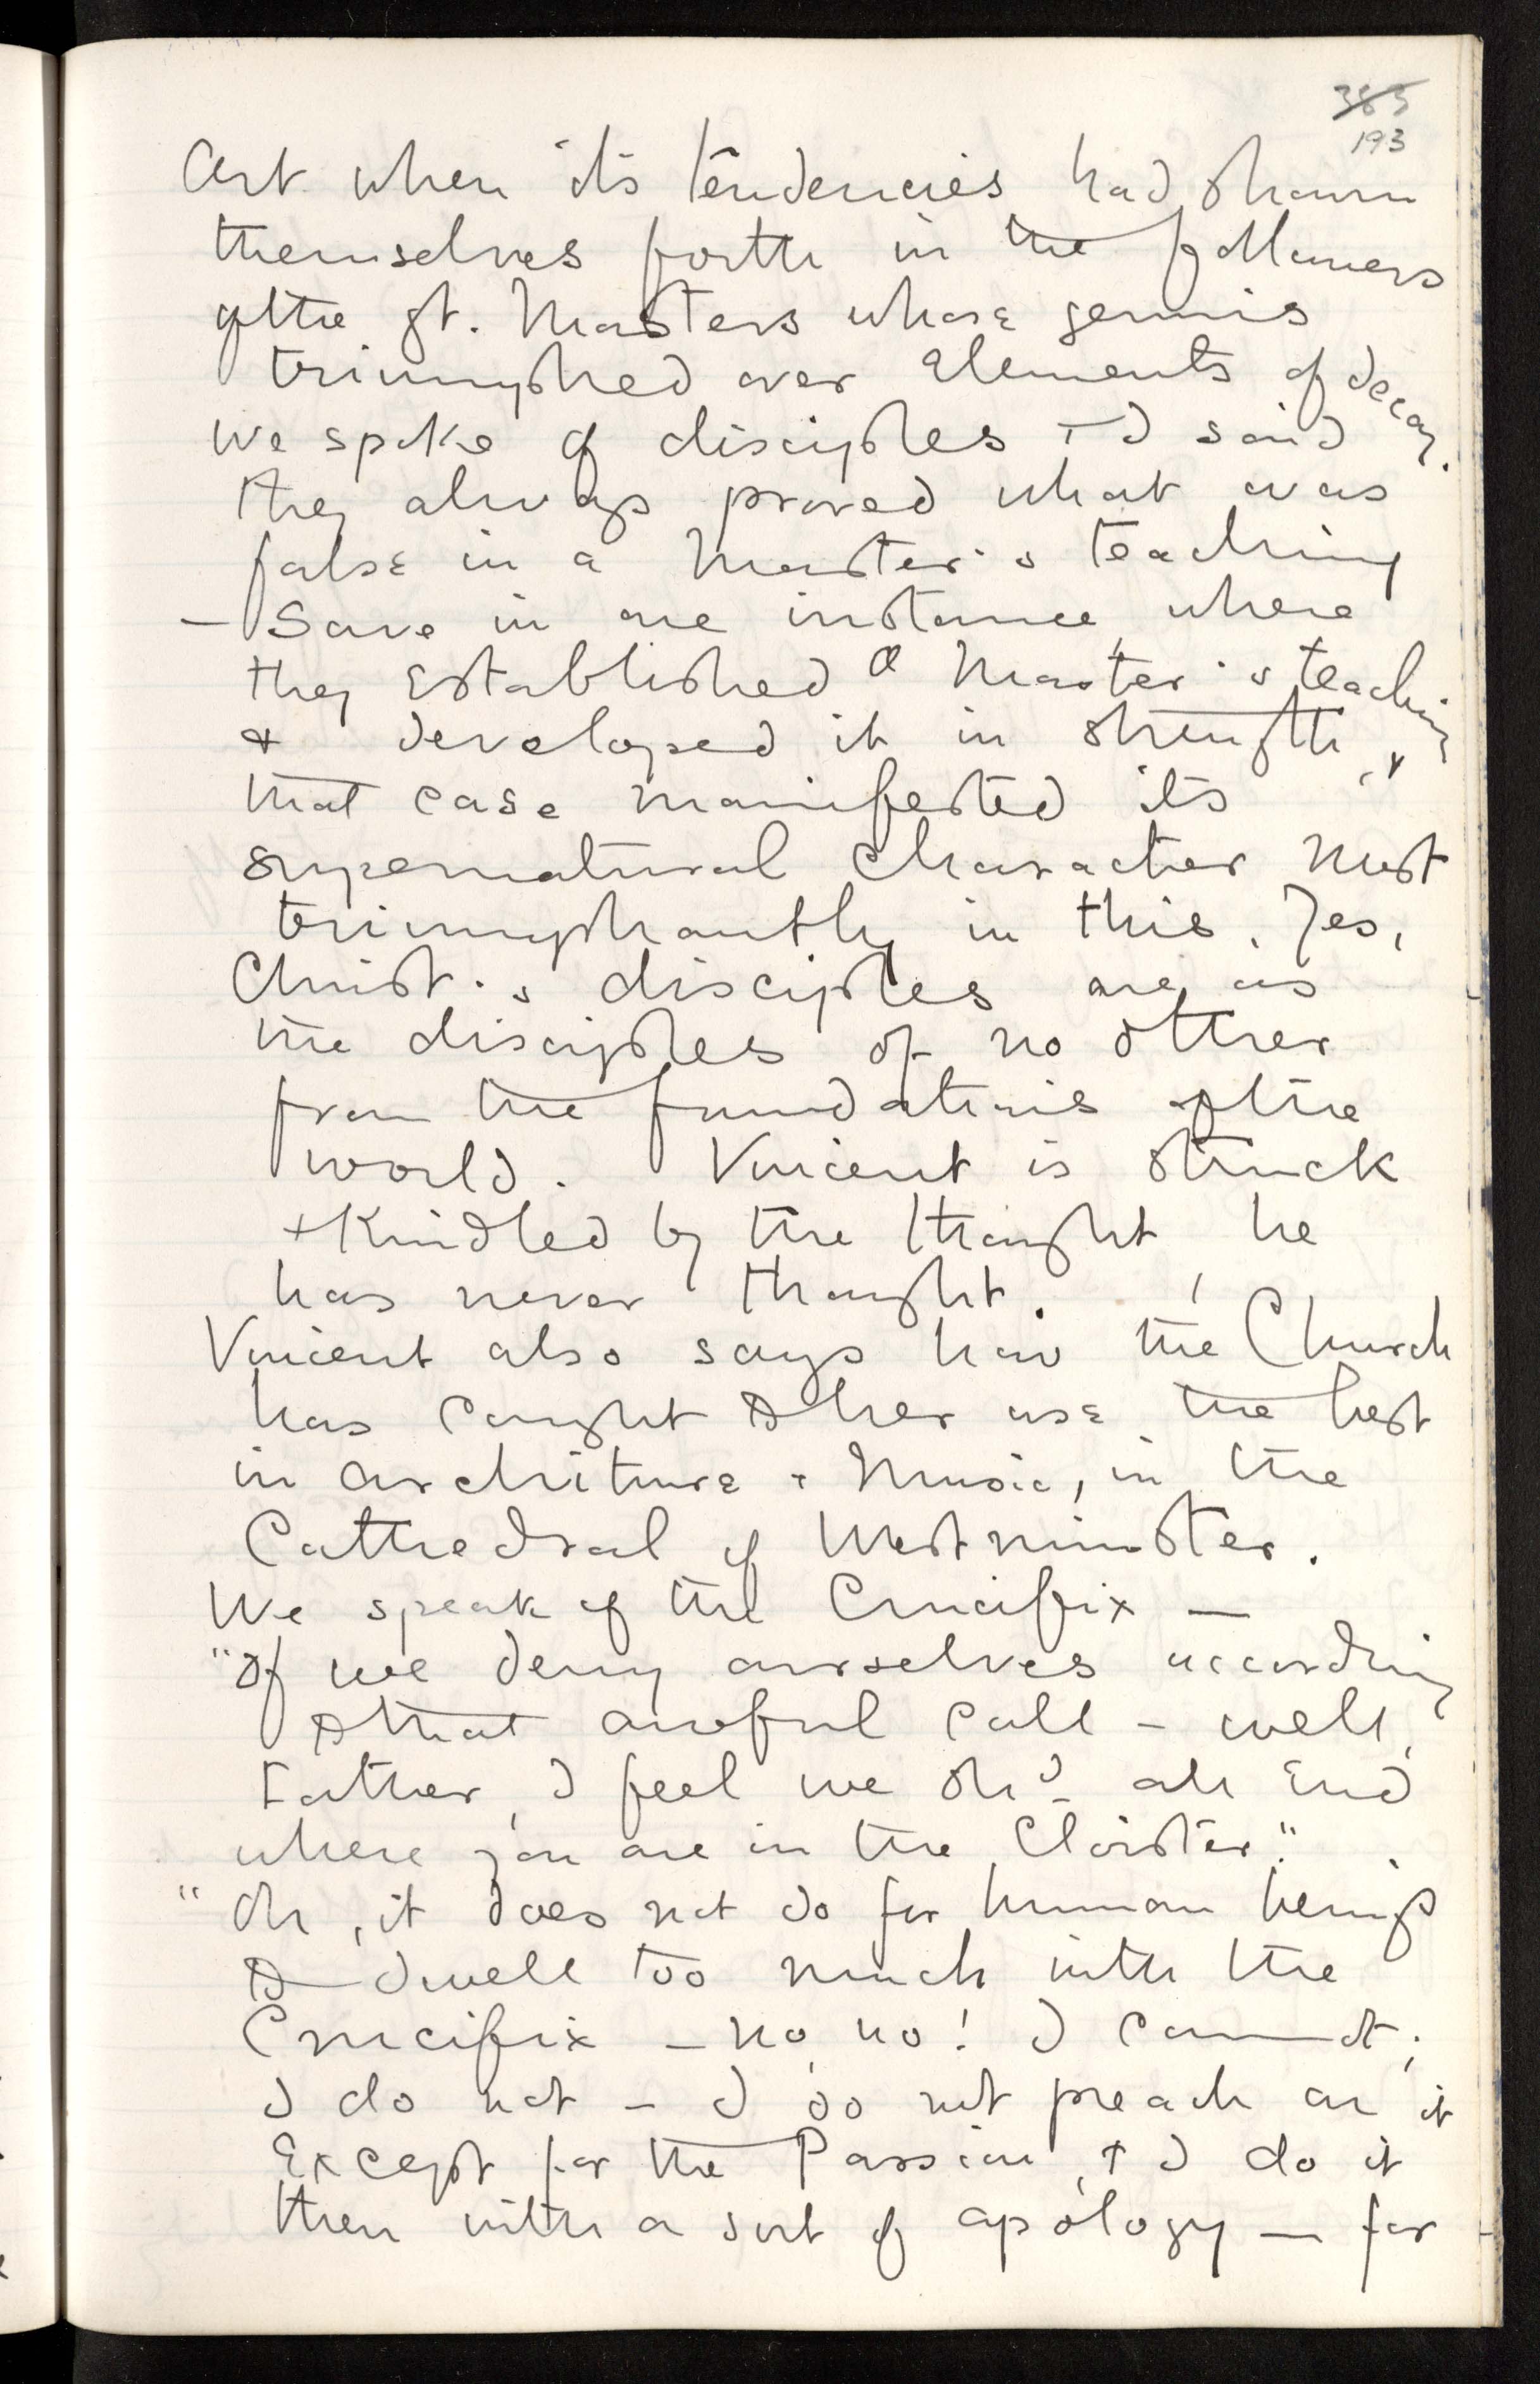 385
193
Art when its tendencies had shown
themselves forth in the followers
of the gt. Masters whose genius
triumphed over Elements of decay.
We spoke of disciples & I said
they always proved what was
false in a Master's teaching
— Save in one instance where
they Established a Master's teaching
& developed it in strength, &
that case manifested its
supernatural character most
triumphantly in this. Yes,
Christ's disciples are as
the disciples of no other
from the foundations of the
world. Vincent is struck
& kindled by the thought he
has never thought.
Vincent also says how the Church
has caught to her use the best
in architure & Music, in the
Cathedral of Westminster.
We speak of the Crucifix —
"If we deny ourselves according
to that awful call — well,
Father, I feel we shd all End
where you are in the Cloister."
"Oh, it does not do for human beings
to dwell too much with the
Crucifix — no, no! I cannot;
I do not — I do not preach on it
Except for the Passion, & I do it
then with a sort of apology — for